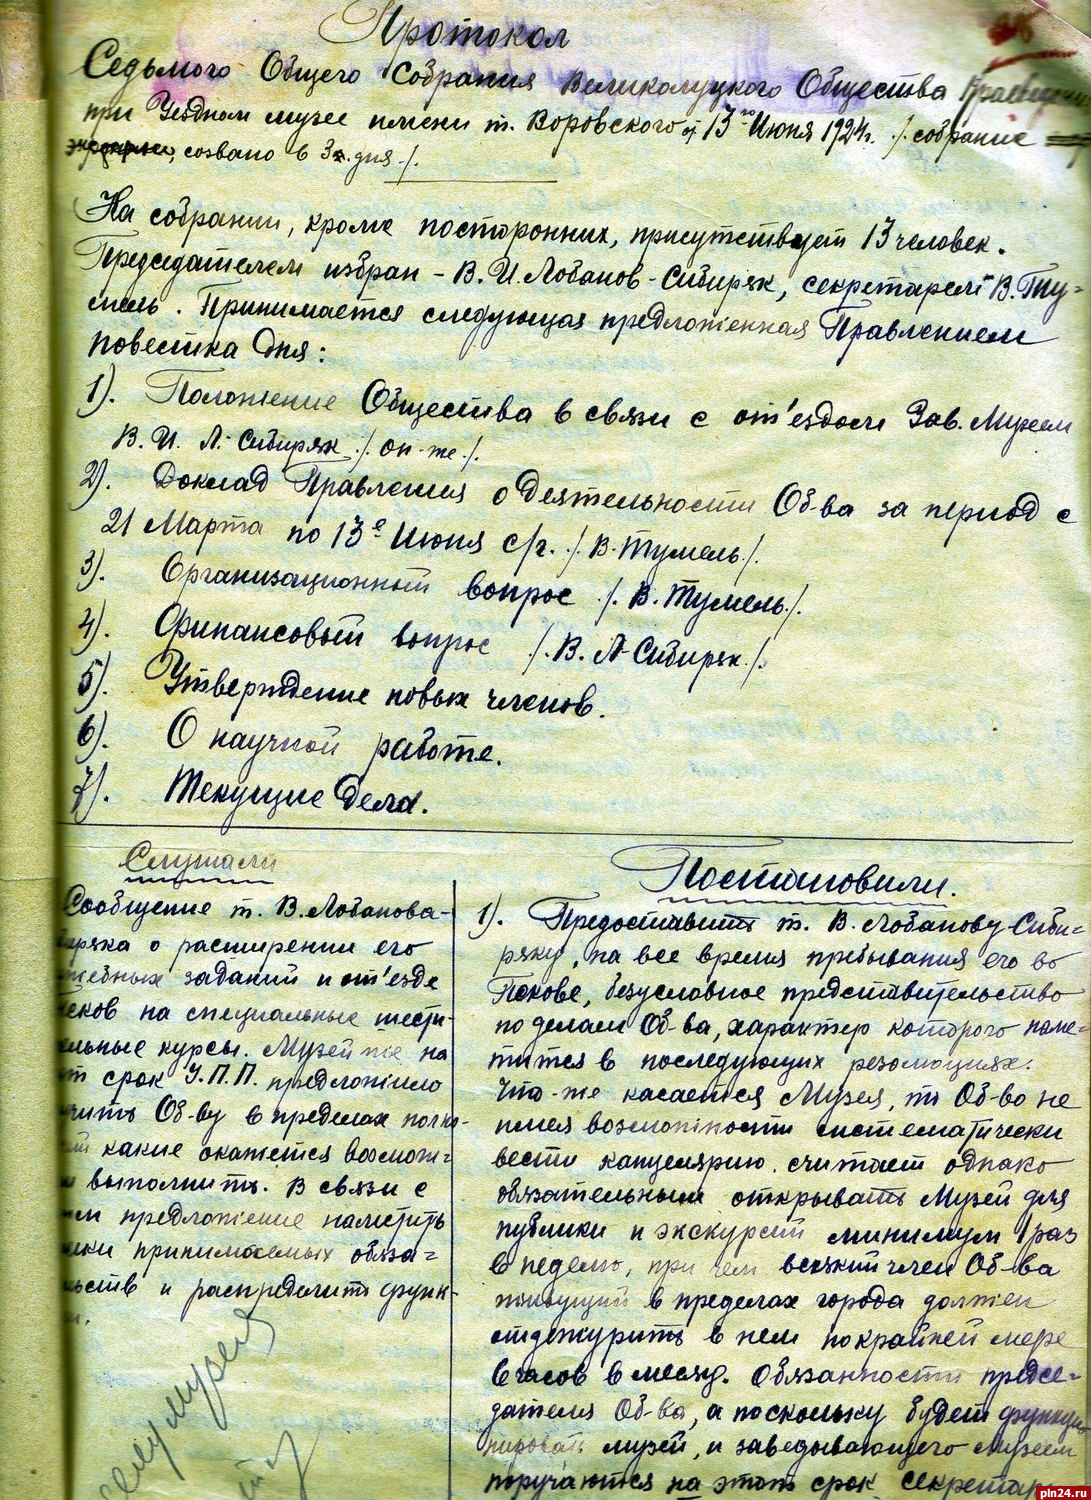 Протокол
Седьмого Общего Собрания Великолуцкого Общества Краеведения
при Уездном музее имени т. Воровского от 13го Июня 1924г. /. собрание
созвано в 3й дня /.
На собрании, кроме посторонних, присутствует 13 человек.
Председателем избран - В. И. Лобанов-Сибиряк, секретарем В. Ту-
мель. Принимается следующая предложенная Правлением
повестка дня:
1). Положение Общества в связи с от'ездом Зав. Музеем
В. И. Л-Сибиряк ./. он-же ./.
2). Доклад Правления о деятельности Об-ва за период с
21 Марта по 13е Июня с/г. ./. В. Тумель ./.
3). Организационный вопрос ./. В. Тумель ./.
4). Финансовый вопрос ./. В. Л-Сибиряк ./.
5). Утверждение новых членов.
6). О научной работе.
7). Текущие дела.
Слушали
Сообщение т. В. Лобанова-
иряка о расширении его
жебных заданий и от'езде
на специальные
ельные курсы. Музей же на
от срок У.П.П. предложило
чить Об-ву в пределах
какие окажется возмож-
выполнить. В связи с
им предложение наметить
принимаемых обяза-
льств и распределить функ-
Постановили.
1). Предоставить т. В. Лобанову-Сиби-
ряку, на все время пребывания его во
Пскове, безусловное представительство
по делам Об-ва, характер которого наме-
тится в последующих резолюциях.
Что-же касается Музея, то Об-во не
имея возможности систематически
вести канцелярию, считает однако
обязательным открывать Музей для
публики и экскурсий минимум 1 раз
в неделю, при чем всякий член Об-ва
живущий в пределах города должен
отдежурить в нем по крайней мере
6 часов в месяц. Обязанности предсе-
дателя Об-ва, а поскольку будет функцио
нировать музей, и заведывающего Музеем
поручаются на этот срок секретар
pln24.ru